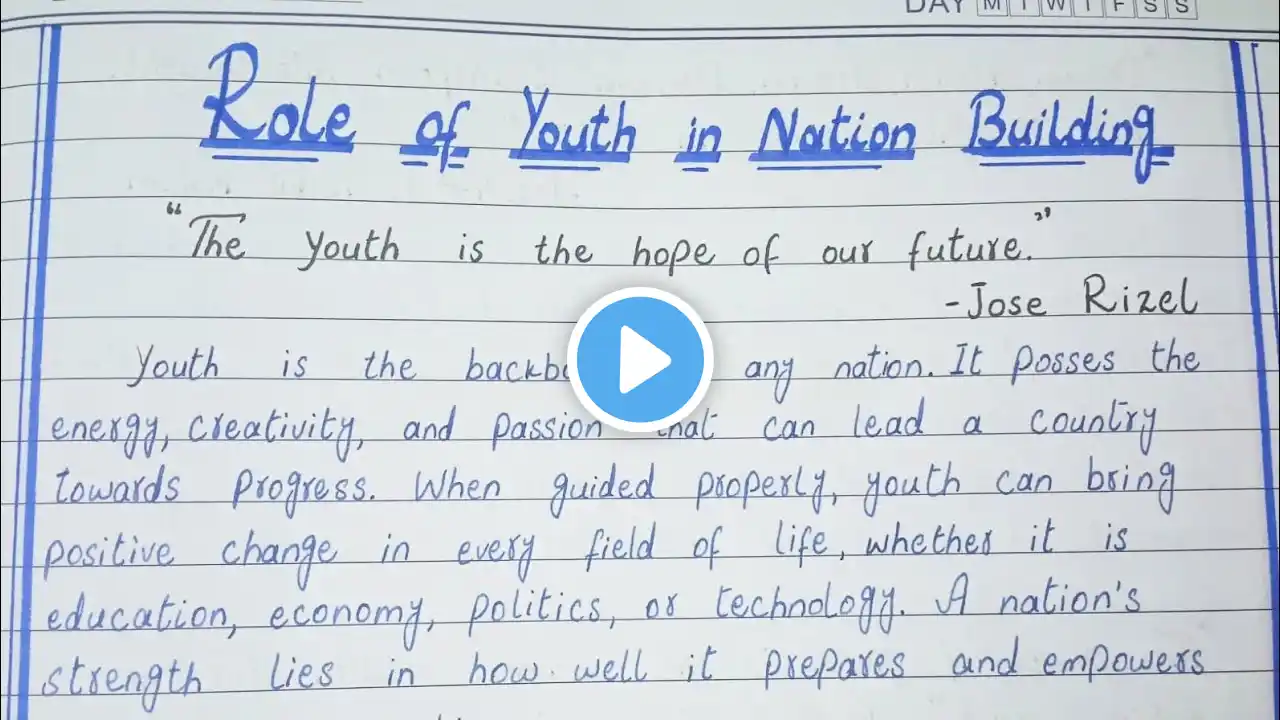 DAY M T W T F S S
Role of Youth in Nation Building
"The youth is the hope of our future."
-Jose Rizel
Youth is the any nation. It posses the
energy, creativity, and passion that can lead a country
towards progress. When guided properly, youth can bring
positive change in every field of life, whether it is
education, economy, politics, or technology. A nation's
strength lies in how well it prepares and empowers